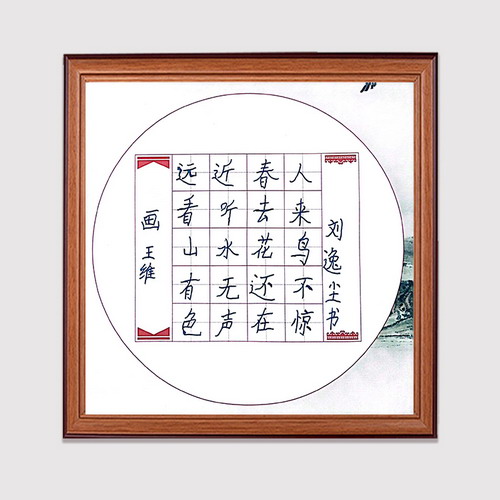 画
王维
远看山有色
近听水无声
春去花还在
人来鸟不惊
刘逸尘书